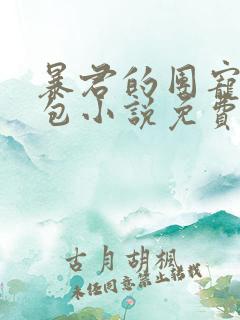 暴君的團寵
包小說免費
古月胡楓
未经同意禁止转载